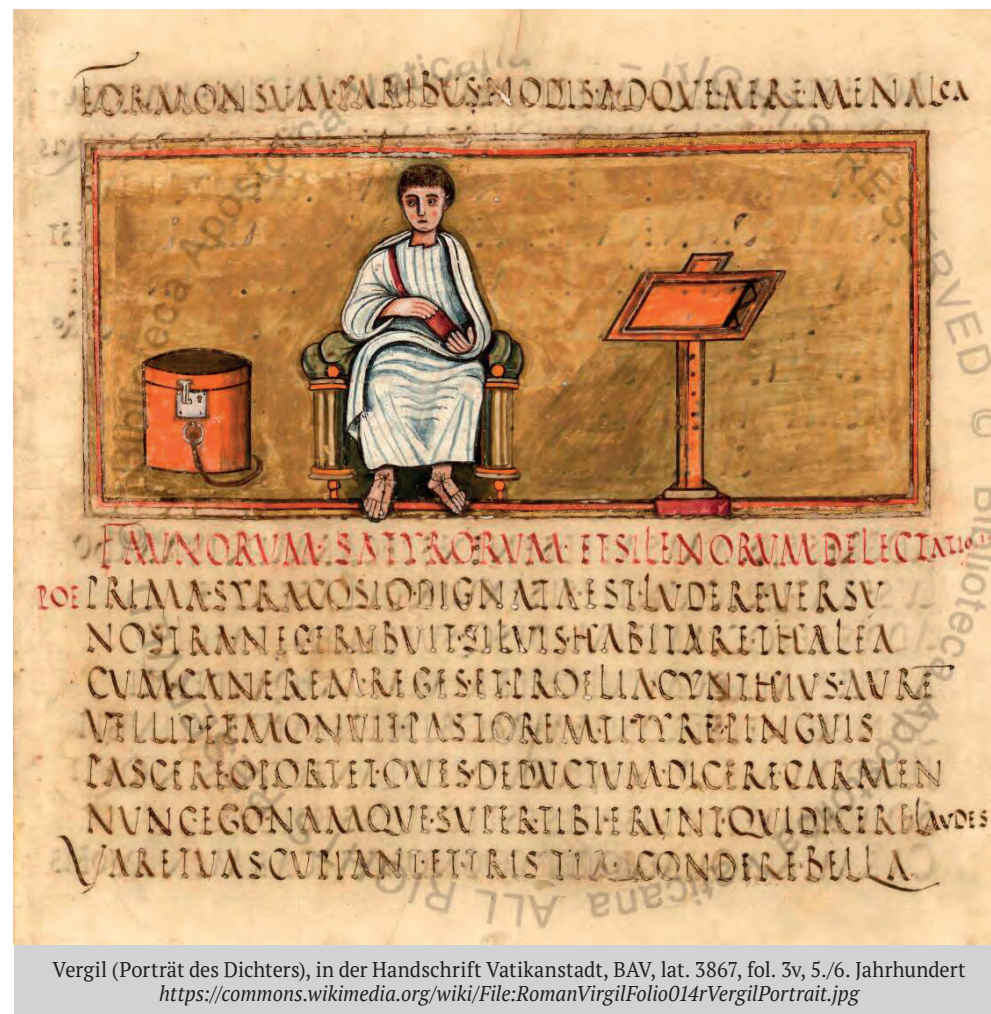 FORMONSVM·PARIBVS·NODIS·ADQVE·AERE·MENALCA
FAVNORVM·SATYRORVM·ET SILENORVM·DELECTATIO
POE PRIMA·SYRACOSIO·DIGNATA·EST·LVDERE·VERSV
NOSTRA·NEC·ERVBVIT·SILVIS·HABITARE·THALEA
CVM·CANEREM·REGES·ET·PROELIA·CYNTHIVS·AVRE
VELLIT·ET·EMONVIT·PASTOREM·TITYRE·PINGVIS
PASCERE·OPORTET·OVES·DEDVCTVM·DICERE·CARMEN
NVNC·EGO·NAMQVE·SVPER·TIBI·ERVNT·QVI·DICERE·LAVDES
VARE·TVAS·CVPIANT·ET·TRISTIA·CONDERE·BELLA
Vergil (Porträt des Dichters), in der Handschrift Vatikanstadt, BAV, lat. 3867, fol. 3v, 5./6. Jahrhundert
https://commons.wikimedia.org/wiki/File:RomanVirgilFolio014rVergilPortrait.jpg